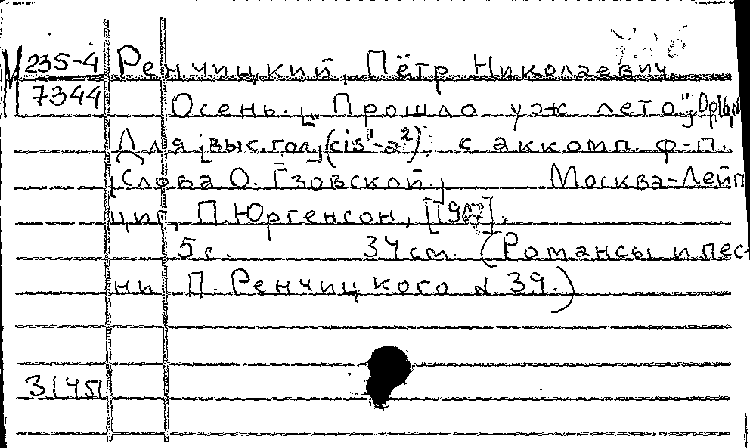 М 235-4
7344
Ренчицкий, Пётр Николаевич.
Осень. ["Прошло уж лето"],
Для [выс. гол.] (cis¹-a²) с аккомп. ф-п.
[Слова О. Гзовской.] Москва-Лейп
циг, П. Юргенсон,
5 с. 34 см. (Романсы и пес-
ни П. Ренчицкого № 39.)